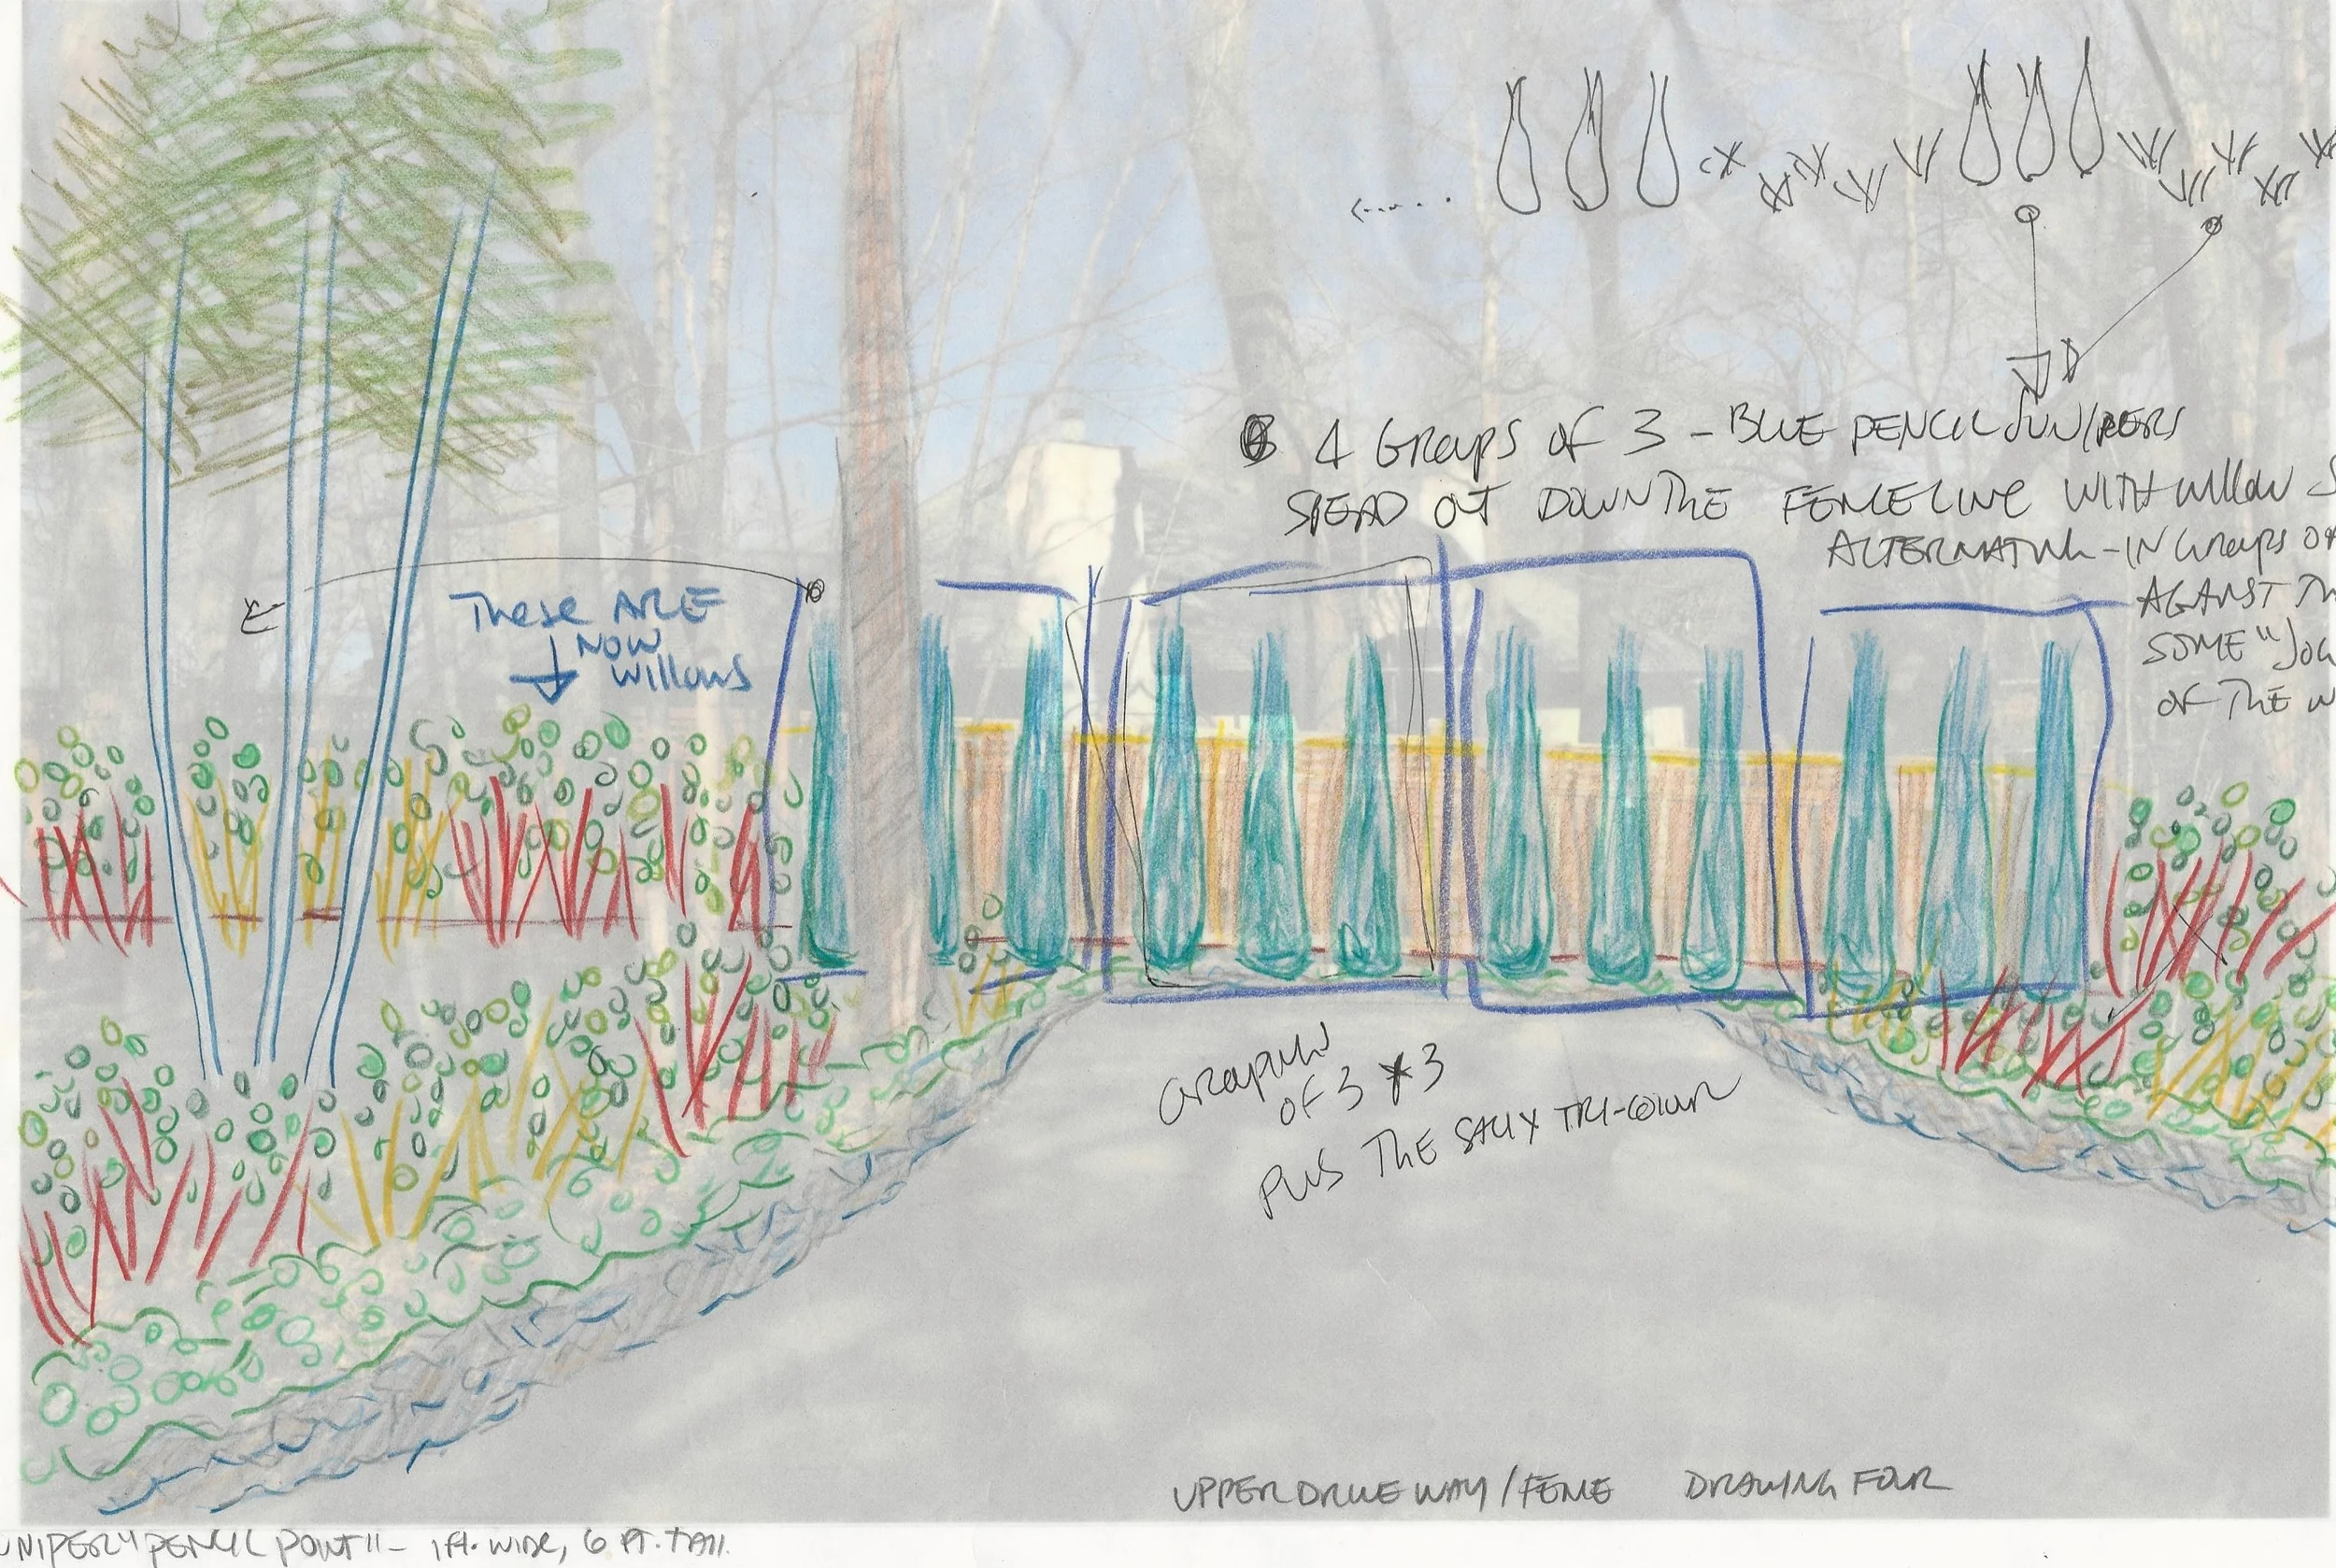 4 GROUPS OF 3 - BLUE PENCIL JUNIPERS
OUT DOWN THE FENCE LINE WITH WILLOW S
ALTERNATING - IN GROUPS OF
AGAINST TH
SOME "JOG
OF THE W
THESE ARE
NOW
WILLOWS
GROUPING
OF 3 X 3
PLUS THE SALIX TRI-COLOR
UPPER DRIVEWAY / FENCE DRAWING FOUR
UNIPER "PENCIL POINT" - 1 FT. WIDE, 6 FT. TALL